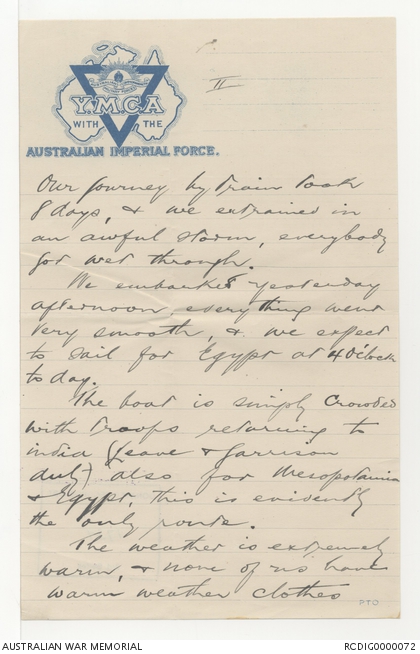 II
Y.M.C.A
WITH THE
AUSTRALIAN IMPERIAL FORCE.
Our journey by train took
8 days, & we extrained in
an awful storm, everybody
got wet through.
We embarked yesterday
afternoon, everything went
very smooth, & we expect
to sail for Egypt at 4 o'clock
to day.
The boat is simply crowded
with troops returning to
india (leave & garrison
duty) also for Mesopotamia
& Egypt, this is evidently
the only route.
The weather is extremely
warm, & none of us have
warm weather clothes
PTO
AUSTRALIAN WAR MEMORIAL
RCDIG0000072